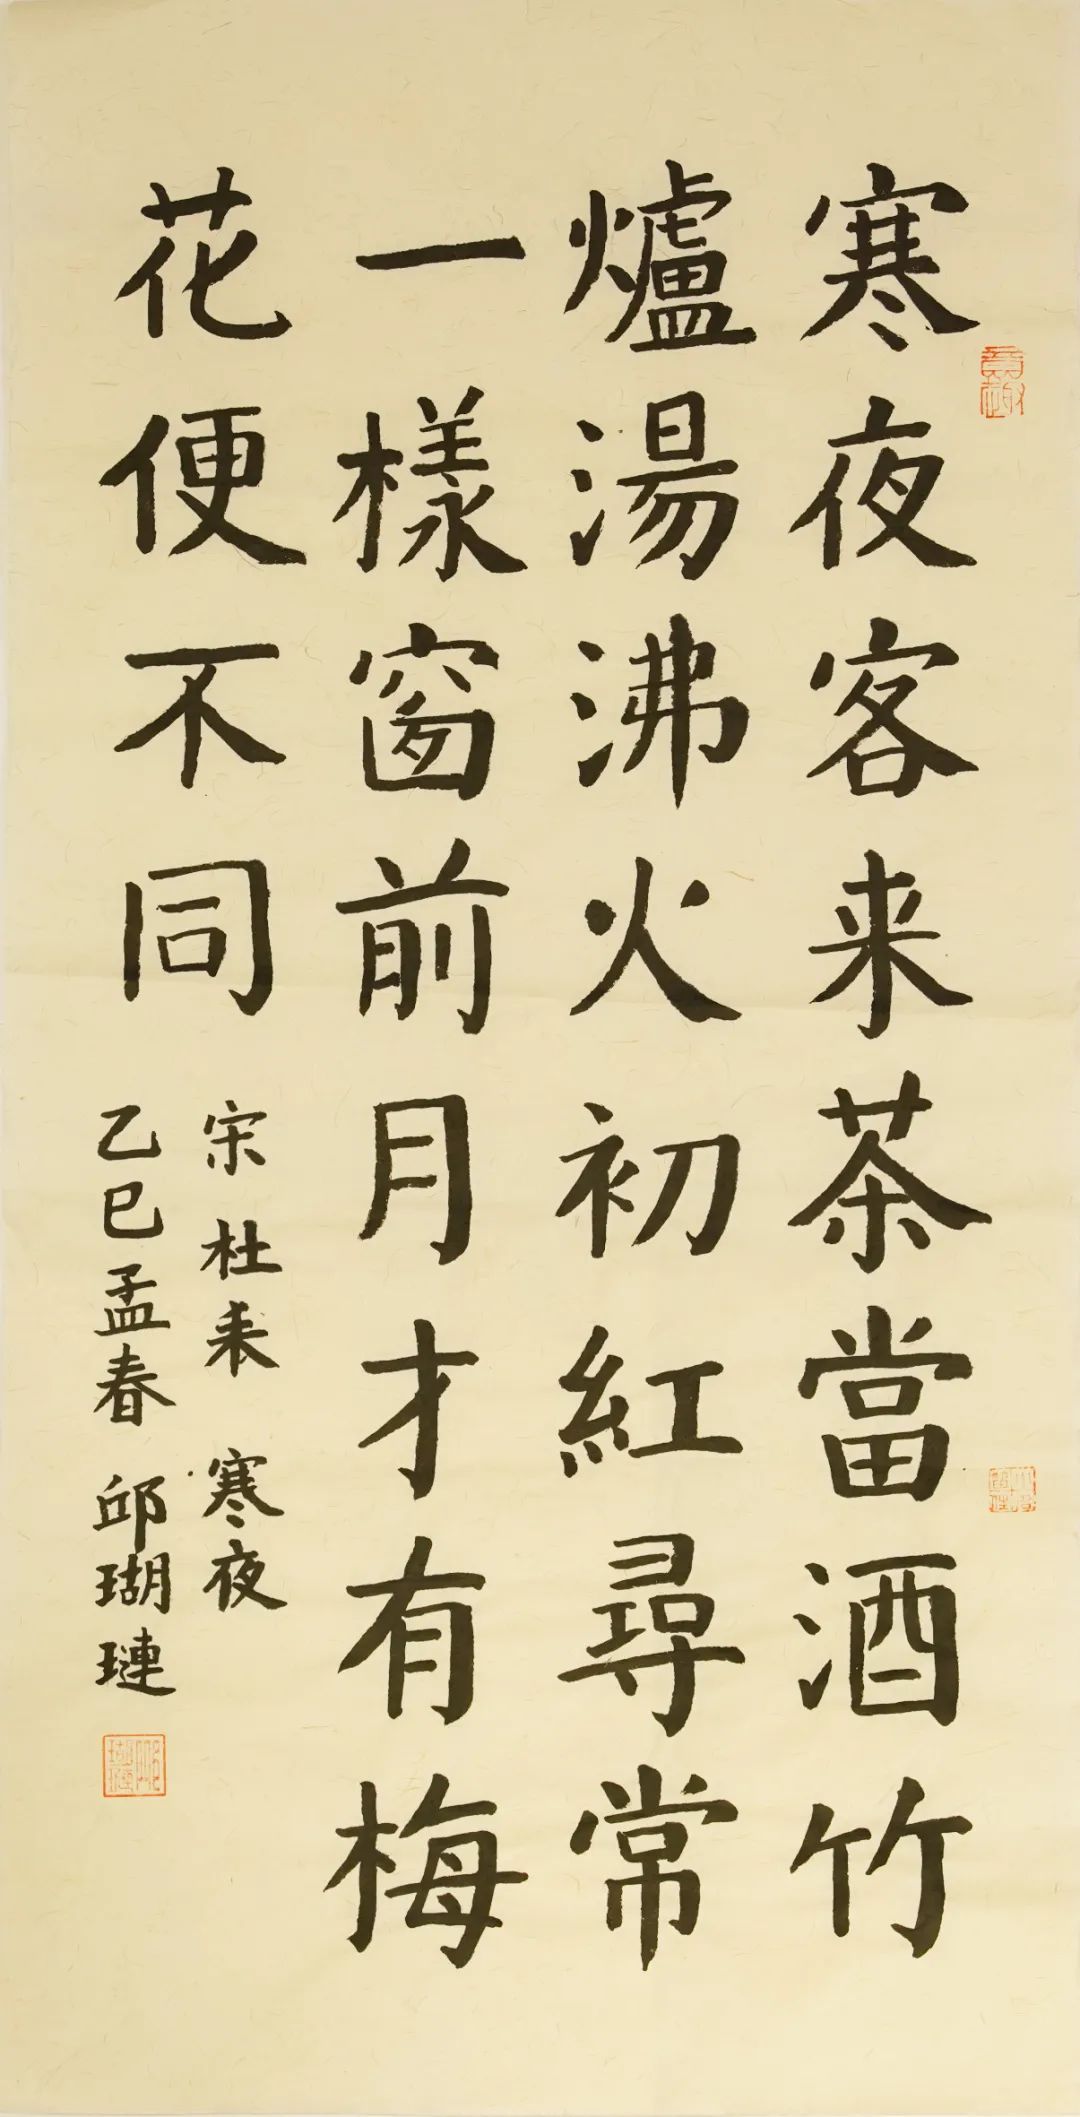 寒夜客来茶當酒竹
爐湯沸火初紅尋常
一樣窗前月才有梅
花便不同
宋杜耒 寒夜
乙巳孟春 邱瑚璉